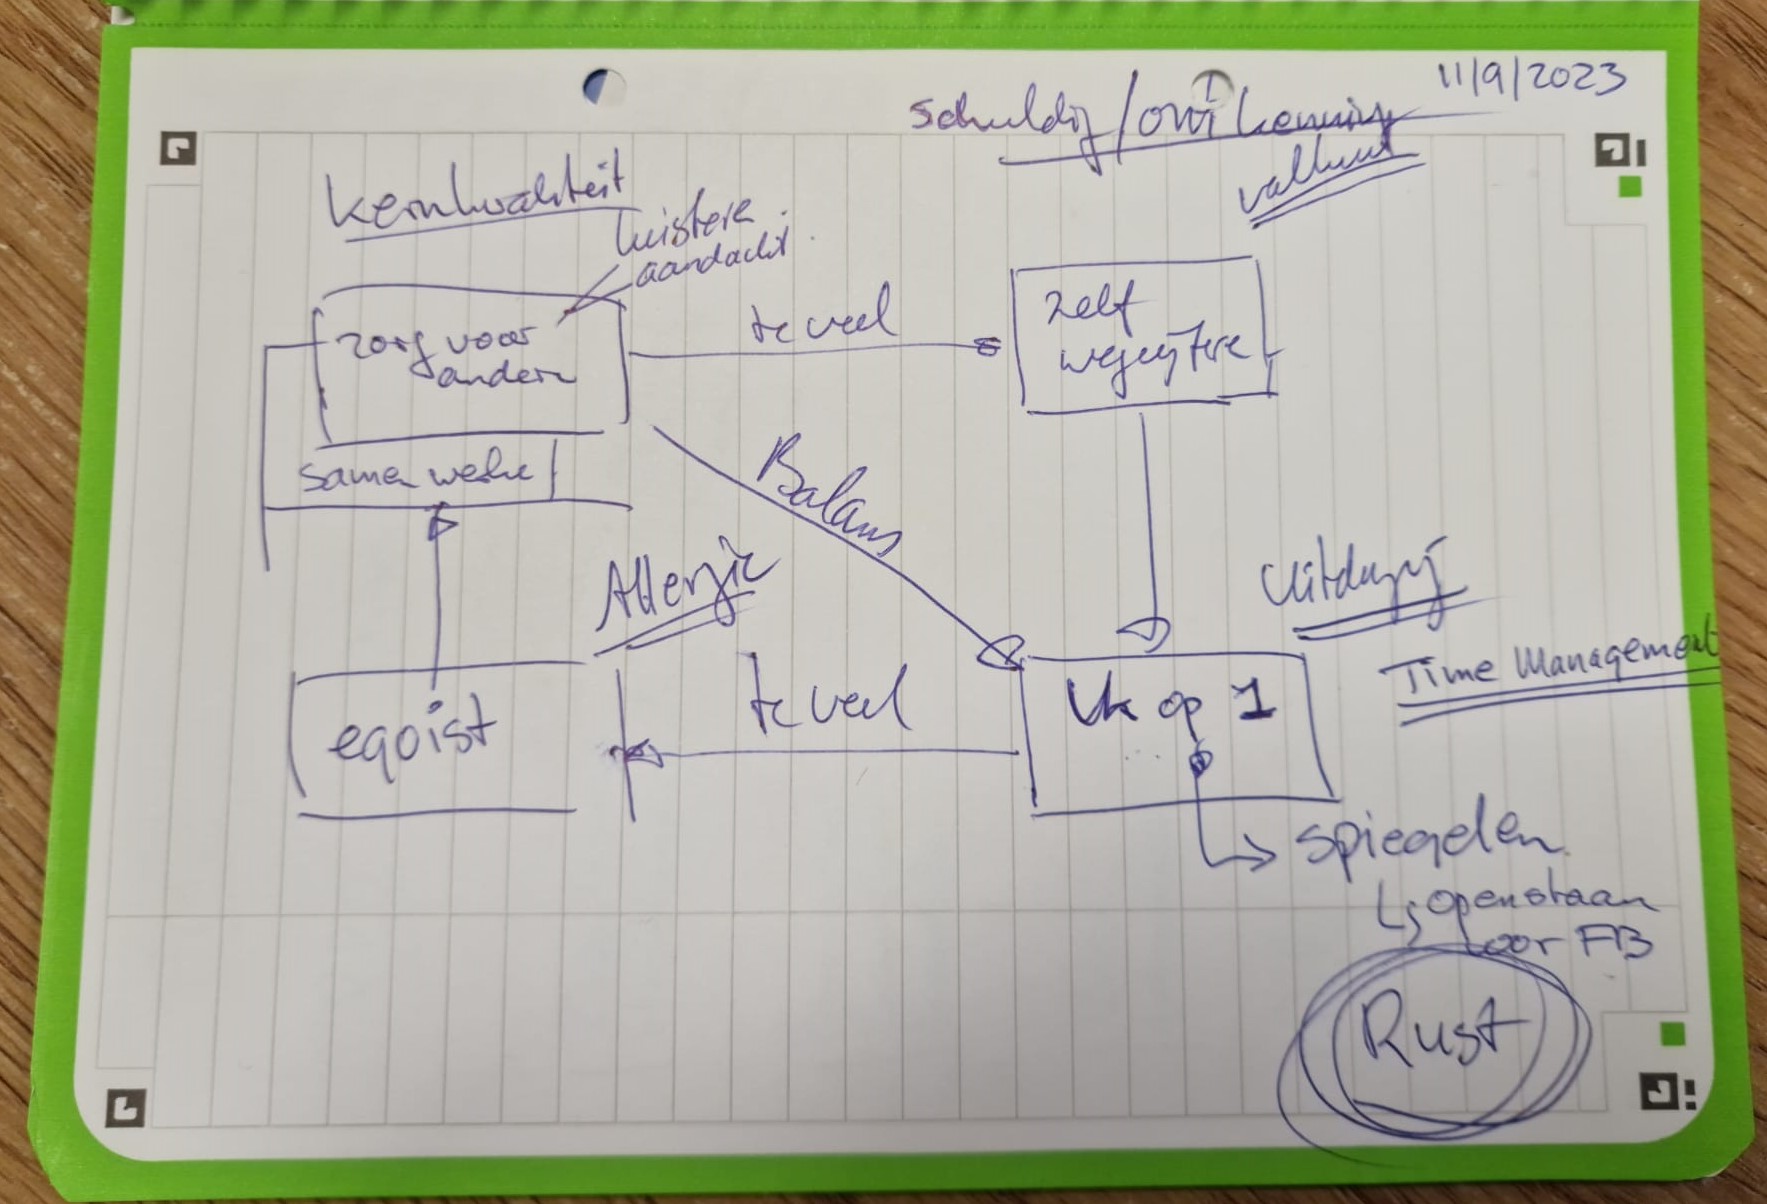 11/9/2023
schuldig/ontkenning
valkuil
Kernkwaliteit
luistere
aandacht.
zorg voor
andern
te veel
zelf
wegcijfere
samen werke
Balans
Allergie
Uitdaging
Time Management
egoist
te veel
Ik op 1
spiegelen
openstaan
voor FB
Rust